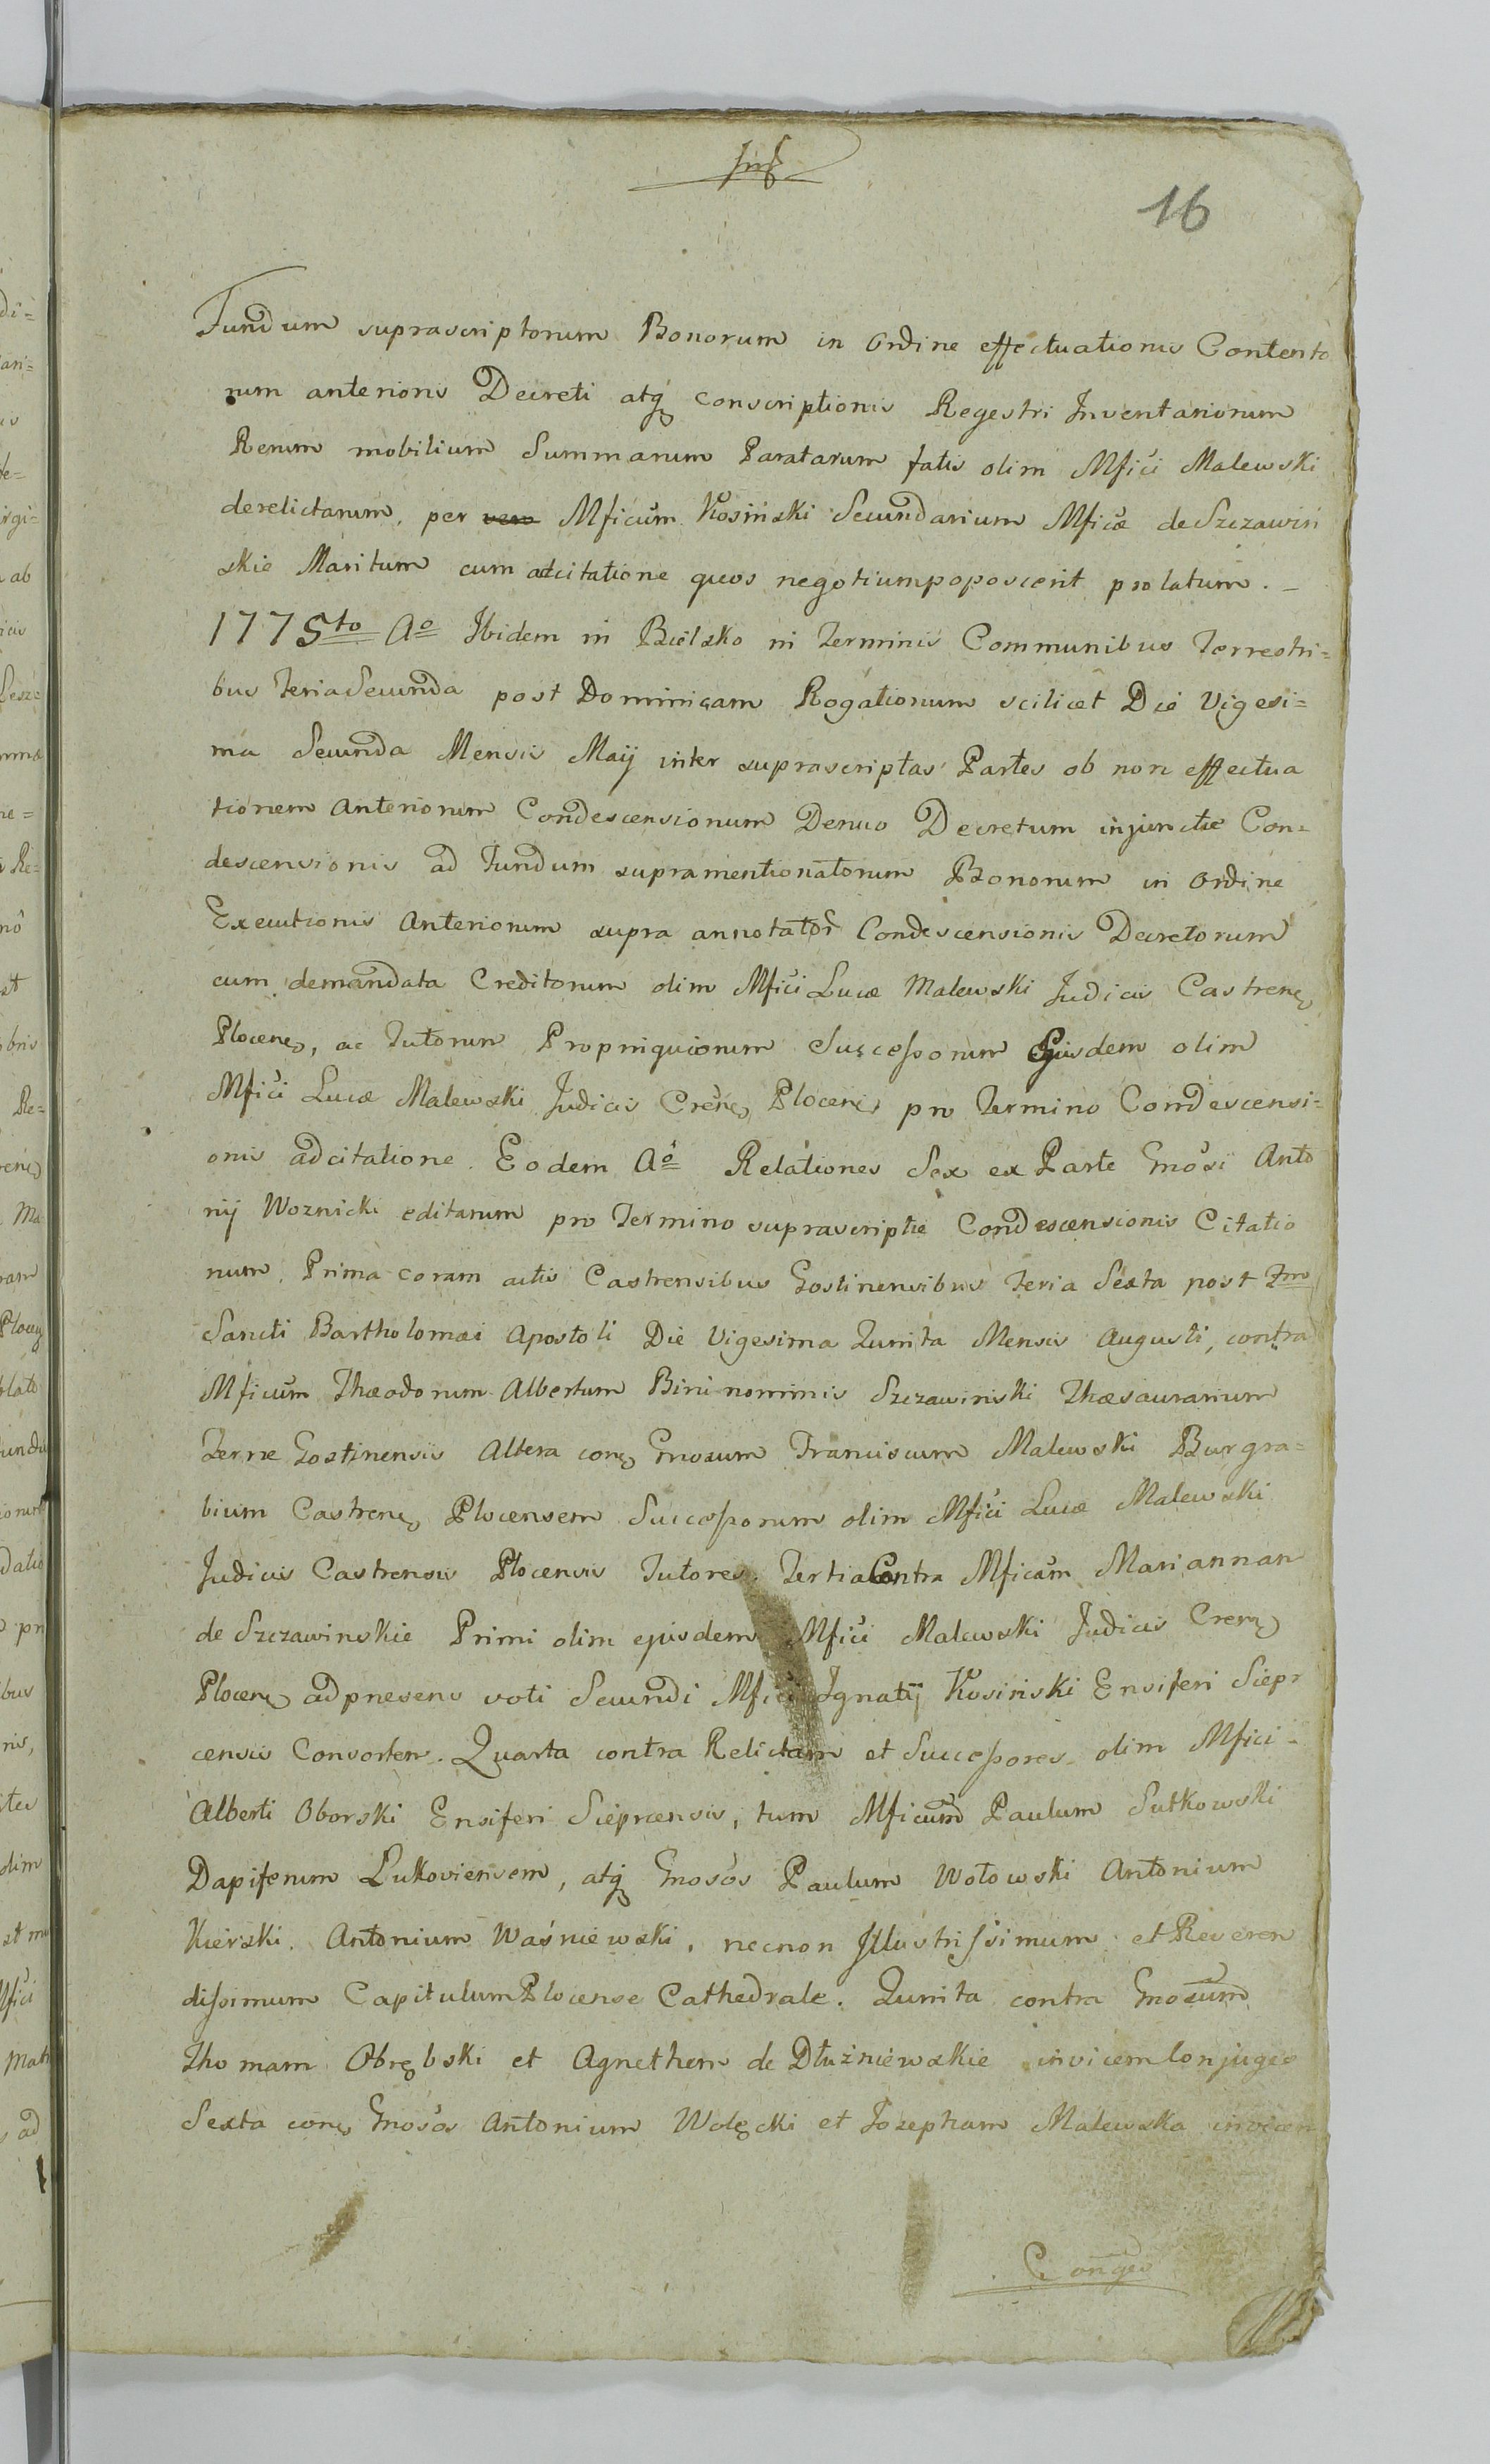 16
Fundum suprascriptorum Bonorum in Ordine effectuationis Contento
rum anterioris Decreti atq́ conscriptionis Regestri Inventariorum
Rerum mobilium Summarum Paratarum fatis olim Mfici Malewski
derelictarum, per vero Mficum Kosiński Secundarium Mficæ de Szczawiń
skie Maritum cum adcitatione quos negotium poposcerit prolatum. –
1775to Ao Ibidem in Bielsko in Terminis Communibus Terrestri=
bus Feria Secunda post Dominicam Rogationum scilicet Die Vigesi=
ma Secunda Mensis Maij inter suprascriptas Partes ob non effectua
tionem Anteriorum Condescensionum Denuo Decretum injunctæ Con=
descensionis ad Fundum supramentionatorum Bonorum in Ordine
Executionis Anteriorum supra annotator Condescensionis Decretorum
cum demandata Creditorum olim Mfici Lucæ Malewski Judicis Castrenę
Plocenę, ac Tutorum Propinquiorum Successorum Ejusdem olim
Mfici Lucæ Malewski Judicis Crenę Plocenę pro Termino Condescensi=
onis adcitatione. Eodem Ao Relationes Sex ex Parte Gnosi Anto
nij Woznicki editarum pro Termino suprascriptæ Condescensionis Citatio
num. Prima coram actis Castrensibus Gostinensibus Feria Sexta post Ftm
Sancti Bartholomæi Apostoli Die Vigesima Quinta Mensis Augusti, contra
Mficum Thæodorum Albertum Bini nominis Szczawinski Thæsaurarium
Terræ Gostinensis Altera conę Gnosum Franciscum Malewski Burgra=
bium Castrenę Plocensem Successorum olim Mfici Lucæ Malewski
Judicis Castrensis Plocensis Tutores. Tertia Contra Mficam Mariannan
de Szczawinskie Primi olim ejusdem Mfici Malewski Judicis Crenę
Plocenę ad præsens voti Secundi Mfici Ignatij Kosiński Ensiferi Siepr
censis Consortem. Quarta contra Relictam et Successores olim Mfici
Alberti Oborski Ensiferi Sieprcensis, tum Mficum Paulum Sutkowski
Dapiferum Lukoviensem, atq́ Gnosos Paulum Wołowski Antonium
Kierski. Antonium Waśniewski, necnon Illustrissimum et Reveren
dissimum Capitulum Plocense Cathedrale. Quinta contra Gnosum
Thomam Obrębski et Agnethem de Dłużniewskie invicem Conjuges
Sexta conę Gnosos Antonium Wolęcki et Josepham Malewska invicem
Conges